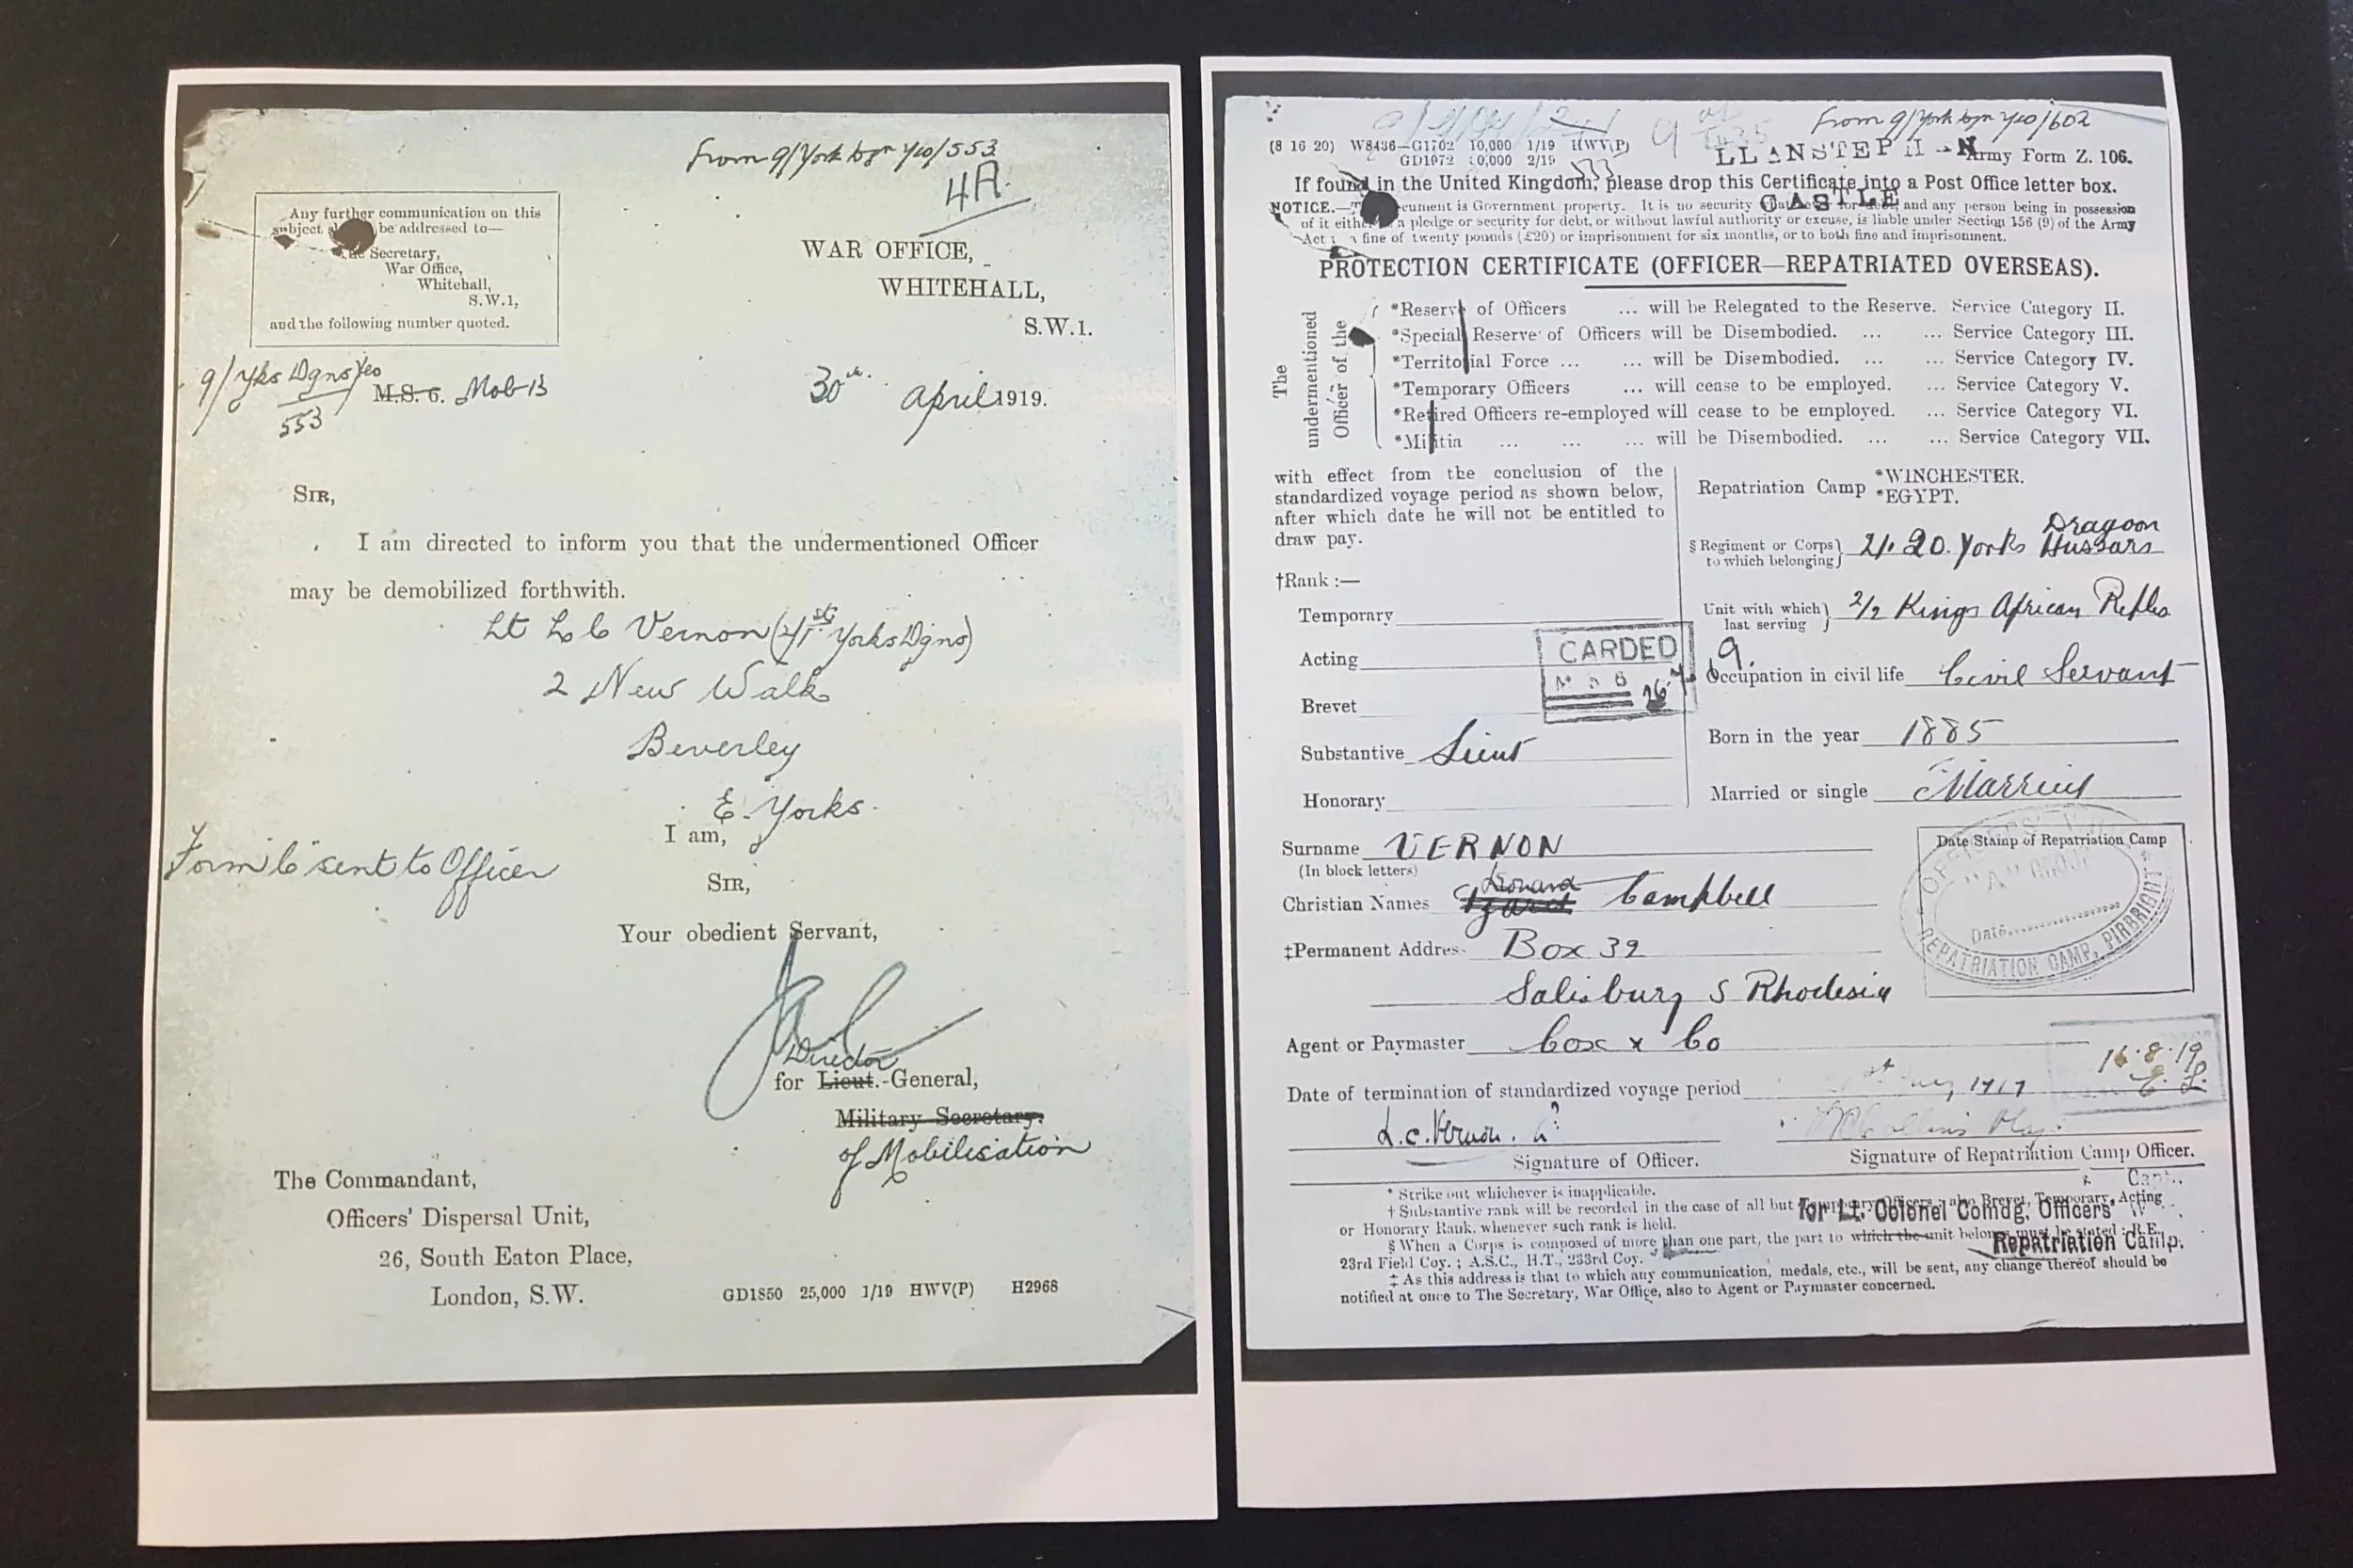 From 9/York Dgn Yeo/553
4A.
Any further communication on this
subject be addressed to—
Secretary,
War Office,
Whitehall,
S.W.1,
and the following number quoted.
WAR OFFICE,
WHITEHALL,
S.W.1.
9/Yks Dgns Yeo
553
M.S. 6. Mob 13
30th. April 1919.
SIR,
I am directed to inform you that the undermentioned Officer
may be demobilized forthwith.
Lt L C Vernon (2/1st Yorks Dgns)
2 New Walk
Beverley
E. Yorks.
I am,
Form C sent to Officer
SIR,
Your obedient Servant,
Director
for Lieut.-General,
Military Secretary.
of Mobilisation
The Commandant,
Officers' Dispersal Unit,
26, South Eaton Place,
London, S.W.
GD1850 25,000 1/19 HWV(P) H2968
From 9/York Dgn Yeo/602
(8 16 20) W8436—G1702 10,000 1/19 HWV(P)
GD1072 10,000 2/19
LLANSTEPH N
Army Form Z. 106.
If found in the United Kingdom, please drop this Certificate into a Post Office letter box.
CASTLE
NOTICE.— cument is Government property. It is no security and any person being in possession
of it either a pledge or security for debt, or without lawful authority or excuse, is liable under Section 156 (9) of the Army
Act fine of twenty pounds (£20) or imprisonment for six months, or to both fine and imprisonment.
PROTECTION CERTIFICATE (OFFICER—REPATRIATED OVERSEAS).
The
undermentioned
Officer of the
*Reserve of Officers ... will be Relegated to the Reserve. Service Category II.
*Special Reserve of Officers will be Disembodied. ... ... Service Category III.
*Territorial Force ... ... will be Disembodied. ... ... Service Category IV.
*Temporary Officers ... will cease to be employed. ... Service Category V.
*Retired Officers re-employed will cease to be employed. ... Service Category VI.
*Militia ... ... ... will be Disembodied. ... ... Service Category VII.
with effect from the conclusion of the
standardized voyage period as shown below,
after which date he will not be entitled to
draw pay.
†Rank :—
Temporary
Acting
Brevet
Substantive Lieut
Honorary
CARDED
Repatriation Camp *WINCHESTER.
*EGYPT.
§ Regiment or Corps to which belonging 2/1. 20. Yorks Dragoon
Hussars
Unit with which last serving 2/2 Kings African Rifles
9.
Occupation in civil life Civil Servant
Born in the year 1885
Married or single Married
Surname VERNON
(In block letters)
Leonard
Christian Names Campbell
‡Permanent Address Box 32
Salisbury S Rhodesia
Date Stamp of Repatriation Camp
Date
REPATRIATION CAMP, PIRBRIGHT
Agent or Paymaster Cox & Co
16.8.19
Date of termination of standardized voyage period
L.C. Vernon.
Signature of Officer.
Signature of Repatriation Camp Officer.
* Strike out whichever is inapplicable.
Capt.,
† Substantive rank will be recorded in the case of all but Temporary Officers; also Brevet, Temporary, Acting
or Honorary Rank, whenever such rank is held.
for Lt. Colonel Comdg. Officers'
§ When a Corps is composed of more than one part, the part to which the unit belongs must be stated: R.E.,
Repatriation Camp.
23rd Field Coy.; A.S.C., H.T., 233rd Coy.
‡ As this address is that to which any communication, medals, etc., will be sent, any change thereof should be
notified at once to The Secretary, War Office, also to Agent or Paymaster concerned.